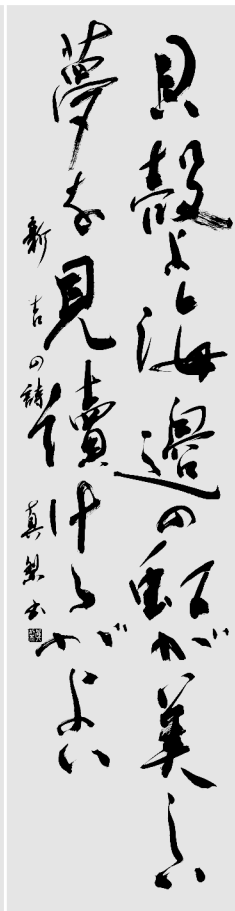 貝殻よ海邉の虹が美しい
夢を見續けるがよい
新吉の詩 真梨書